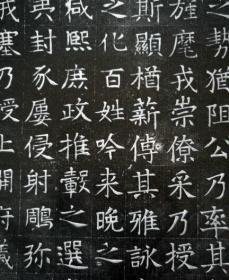 之勢猶阻公乃率其
旌麾戎崇僚采乃授
斯顯楢薪傅其雅詠
之化百姓吟来晚之
咸熙庶政推轂之選
封豕屢侵射鵰弥
塞乃受上開府儀